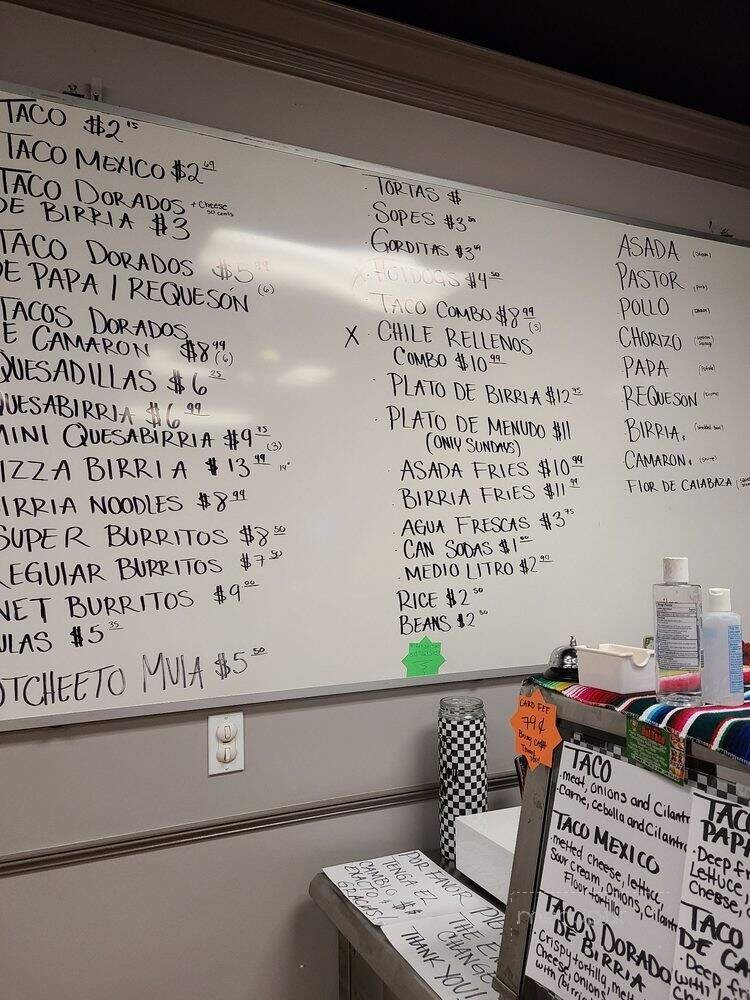 TACO $2 15
TACO MEXICO $2 69
TACO DORADOS + Cheese 50 cents
DE BIRRIA $3
TACO DORADOS $5 99
DE PAPA / REQUESÓN (6)
TACOS DORADOS
E CAMARON $8 99 (6)
QUESADILLAS $6 25
QUESABIRRIA $6 99
MINI QUESABIRRIA $9 75 (3)
IZZA BIRRIA $13 99 14"
IRRIA NOODLES $8 99
SUPER BURRITOS $8 50
REGULAR BURRITOS $7 50
WET BURRITOS $9 00
ULAS $5 35
OTCHEETO MULA $5 50
TORTAS $
SOPES $3 50
GORDITAS $3 49
X HOTDOGS $4 50
TACO COMBO $8 99 (3)
X CHILE RELLENOS
COMBO $10 99
PLATO DE BIRRIA $12 95
PLATO DE MENUDO $11
(ONLY SUNDAYS)
ASADA FRIES $10 99
BIRRIA FRIES $11 99
AGUA FRESCAS $3 75
CAN SODAS $1 00
MEDIO LITRO $2 90
RICE $2 50
BEANS $2 50
ASADA (Steak)
PASTOR (Pork)
POLLO
CHORIZO
PAPA (Potato)
REQUESON
BIRRIA
CAMARON
FLOR DE CALABAZA
CARD FEE
79¢
Bring Cash
Thank
You!
TACO
meat, onions and Cilantr
Carne, cebolla and Cilantr
TACO MEXICO
melted cheese, lettuce,
Sour cream, onions, Cilant
Flour tortilla
TACOS DORADO
DE BIRRIA
Crispy tortilla, me
Cheese, onions,
with (birri
TACO
PAPA
Deep fr
Lettuce,
Cheese,
TACO
DE CA
Deep fri
with
POR FAVOR
TENGA EL
CAMBIO $$
EXACTO
GRACIAS
THE E
CHANGE
THANK YOU!